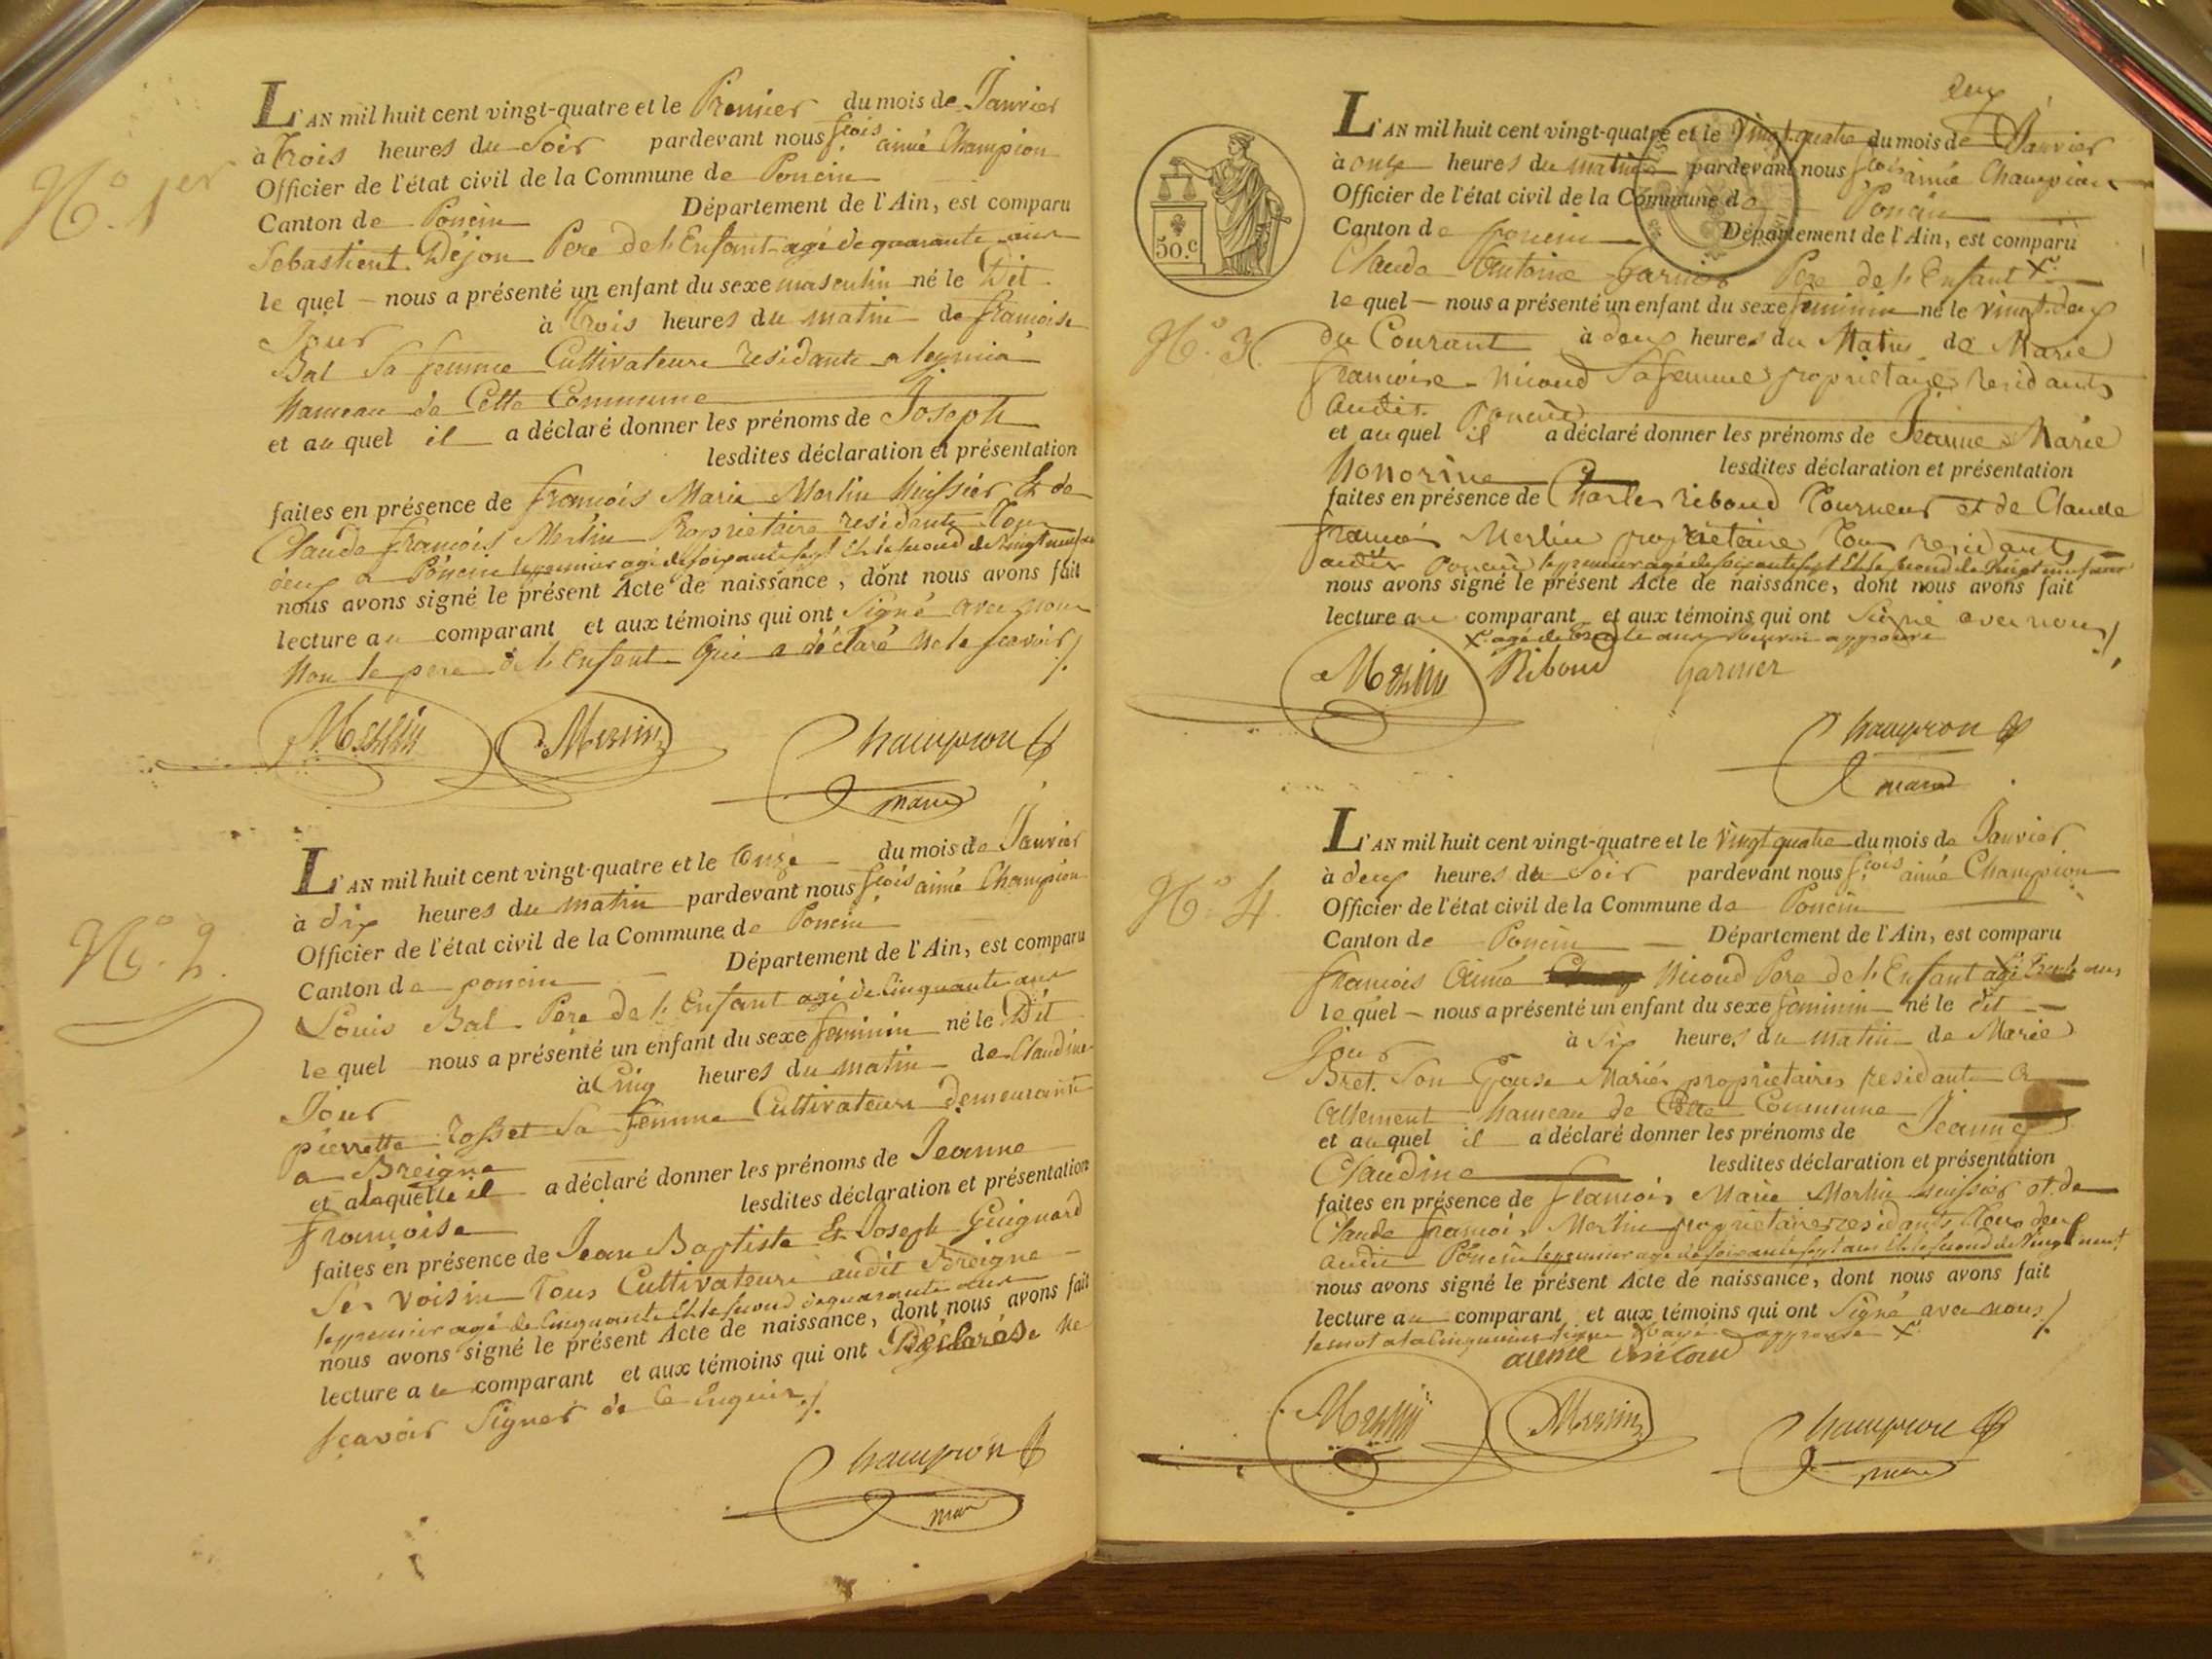 N.º 1er
L'AN mil huit cent vingt-quatre et le Premier du mois de Janvier
à trois heures du Soir pardevant nous fçois aimé Champion
Officier de l'état civil de la Commune de Poncin
Canton de Poncin Département de l'Ain, est comparu
Sebastient Dejon Pere de l'Enfant agé de quarante ans
le quel nous a présenté un enfant du sexe masculin né le Dit
Jour à trois heures du matin de francoise
Bal Sa femme Cultivateurs residants a
hameau de Cette Commune
et au quel il a déclaré donner les prénoms de Joseph
lesdites déclaration et présentation
faites en présence de francois Marie Merlin huissier Et de
Claude francois Merlin Proprietaire residants Tous
deux a Poncin le premier agé de soixante sept Et le second de Vingt neuf ans
nous avons signé le présent Acte de naissance, dont nous avons fait
lecture au comparant et aux témoins qui ont Signé avec nous
Non le pere de l'enfant Qui a déclaré ne le scavoir ./.
Merlin Merlin Champion
maire
N.º 2.
L'AN mil huit cent vingt-quatre et le Onze du mois de Janvier
à dix heures du matin pardevant nous fçois aimé Champion
Officier de l'état civil de la Commune de Poncin
Canton de poncin Département de l'Ain, est comparu
Louis Bal Pere de l'Enfant agé de Cinquante ans
le quel nous a présenté un enfant du sexe feminin né le Dit
Jour à Cinq heures du matin de Claudine
pierrette Rosset Sa femme Cultivateurs demeurants
a Breigne
et a laquelle il a déclaré donner les prénoms de Jeanne
francoise lesdites déclaration et présentation
faites en présence de Jean Baptiste Et Joseph Guignard
Ses Voisin Tous Cultivateurs audit Breigne
le premier agé de Cinquante Et le second de quarante ans
nous avons signé le présent Acte de naissance, dont nous avons fait
lecture au comparant et aux témoins qui ont Déclarés Ne
scavoir Signer de Ce Enquis ./.
Champion
maire
deux
L'AN mil huit cent vingt-quatre et le Vingt-quatre du mois de Janvier
à onze heures du matin pardevant nous fçois aimé Champion
Officier de l'état civil de la Commune de Poncin
Canton de poncin Département de l'Ain, est comparu
50.c
Claude Antoine Garnier Pere de l'Enfant X.
le quel nous a présenté un enfant du sexe feminin né le vingt-deux
N.º 3.
du Courant à deux heures du Matin de Marie
francoise Nicoud Sa femme proprietaires residants
audit Poncin
et au quel il a déclaré donner les prénoms de Jeanne Marie
honorine lesdites déclaration et présentation
faites en présence de Charles riboud Tourneur et de Claude
francois Merlin proprietaire Tous residants
audit Poncin le premier agé de soixante sept Et le second de Vingt neuf ans
nous avons signé le présent Acte de naissance, dont nous avons fait
lecture au comparant et aux témoins qui ont Signé avec nous ./.
X agé de ans approuvé
Merlin Riboud Garnier
Champion
maire
L'AN mil huit cent vingt-quatre et le Vingt quatre du mois de Janvier
à deux heures du Soir pardevant nous fçois aimé Champion
N.º 4.
Officier de l'état civil de la Commune de Poncin
Canton de Poncin Département de l'Ain, est comparu
francois Aimé Nicoud Pere de l'Enfant agé trente ans
le quel nous a présenté un enfant du sexe feminin né le dit
Jour à Six heures du matin de Marie
Bret Son Epouse Mariés proprietaires residants a
Allement hameau de Cette Commune
et au quel il a déclaré donner les prénoms de Jeanne
Claudine lesdites déclaration et présentation
faites en présence de francois Marie Merlin huissier et de
Claude francois Merlin proprietaire residants Tous deux
audit Poncin le premier agé de soixante sept ans Et le second de Vingt neuf
nous avons signé le présent Acte de naissance, dont nous avons fait
lecture au comparant et aux témoins qui ont Signé avec nous ./.
le mot a la Cinquieme ligne Rayé approuvé X
aimé nicoud
Merlin Merlin Champion
maire